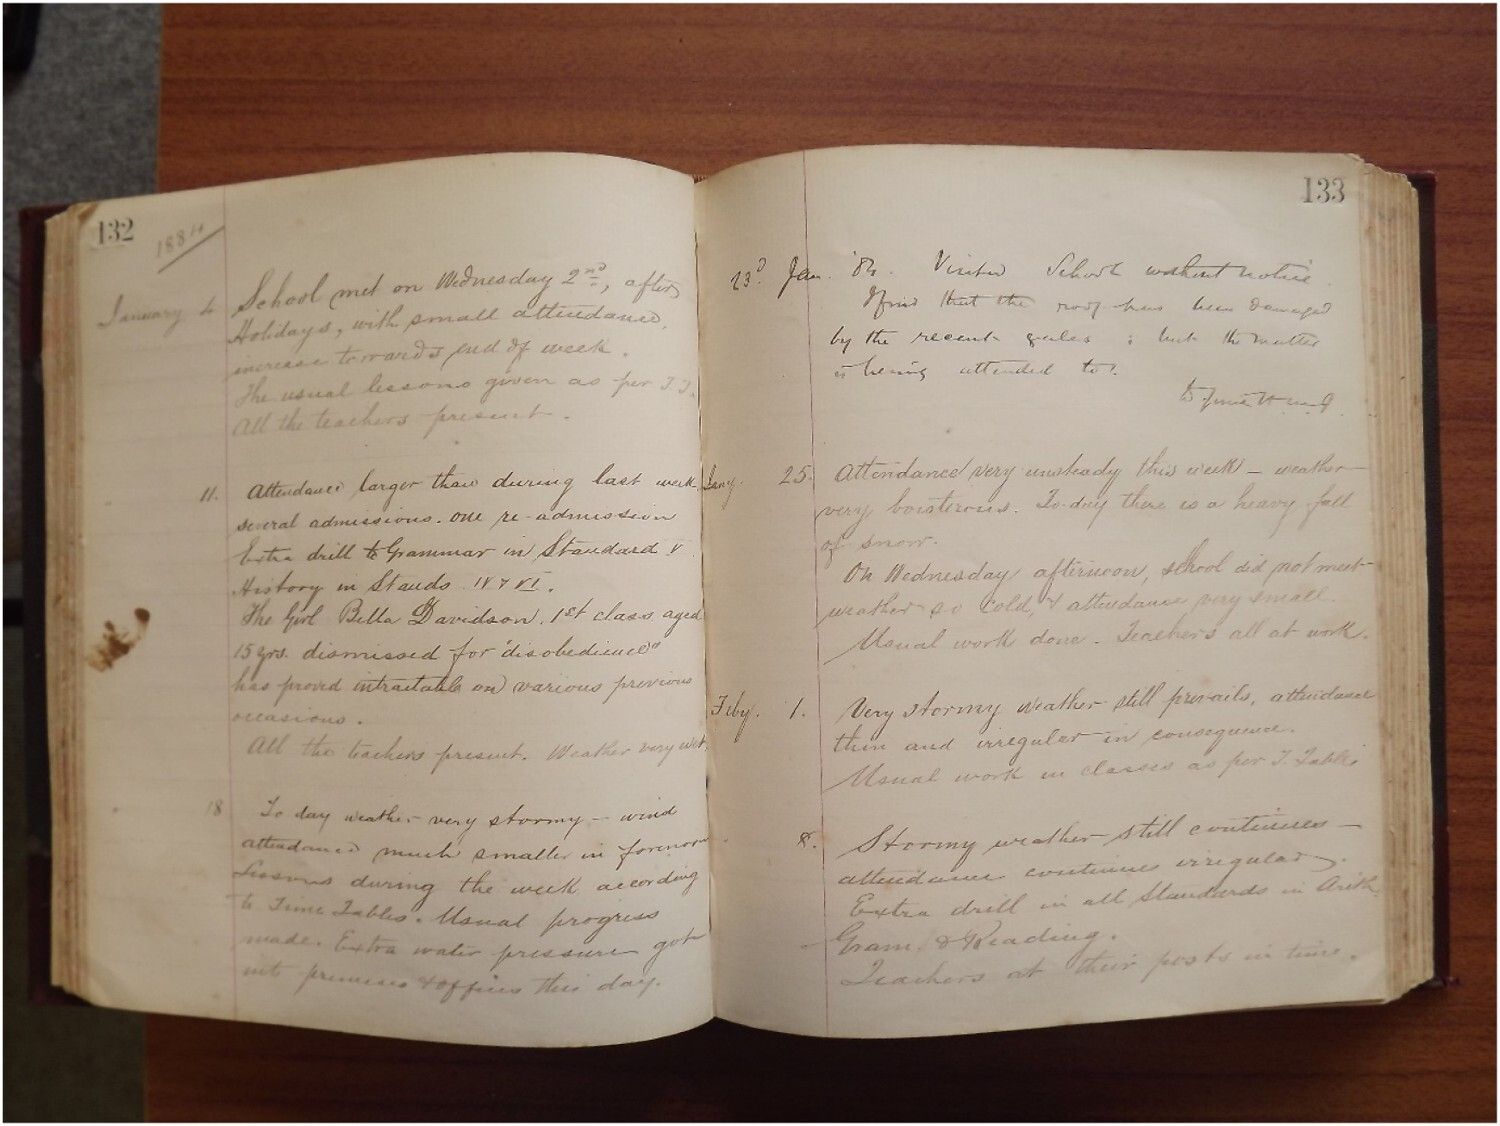 132
1884
January 4. School met on Wednesday 2nd, after
Holidays, with small attendance,
increase towards end of week.
The usual lessons given as per T.T.
All the teachers present.
11. Attendance larger than during last week.
several admissions. one re-admission
Extra drill to Grammar in Standard V
History in Stands. IV & VI.
The Girl Bella Davidson. 1st class, aged
15 yrs. dismissed for "disobedience"
has proved intractable on various previous
occasions.
All the teachers present. Weather very wet.
18 To day weather very stormy - wind
attendance much smaller in forenoon
Lessons during the week according
to Time Tables. Usual progress
made. Extra water pressure got
into premises & offices this day.
133
23d Jan. '84. Visited School without notice
I find that the roof has been damaged
by the recent gales ; but the matter
is being attended to.
Jany. 25. Attendance very unsteady this week - weather
very boisterous. To-day there is a heavy fall
of snow.
On Wednesday afternoon, school did not meet
weather so cold, & attendance very small.
Usual work done. Teachers all at work.
Feby. 1. Very stormy weather still prevails, attendance
thin and irregular in consequence.
Usual work in classes as per T. Tables
8. Stormy weather still continues -
attendance continues irregular.
Extra drill in all Standards in Arith.
Gram. & Reading.
Teachers at their posts in time.